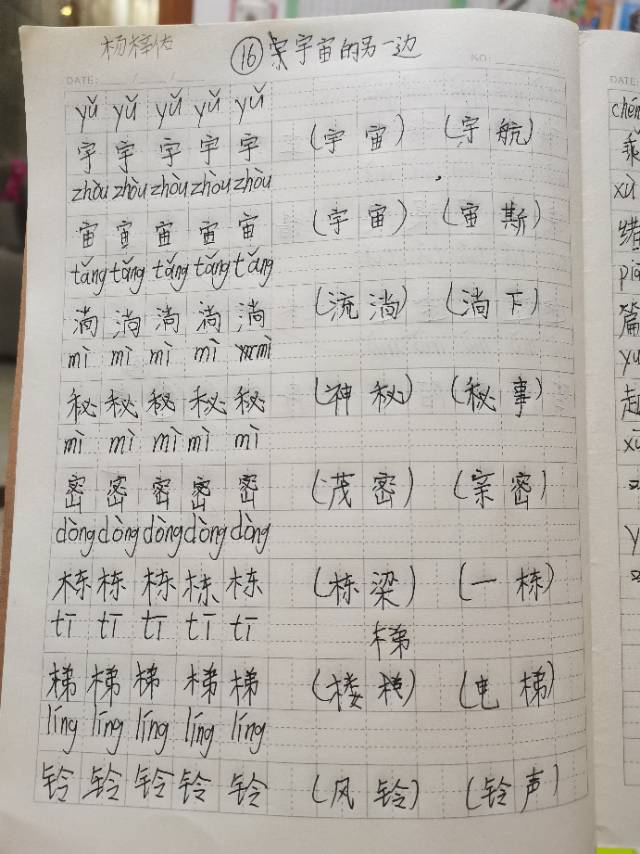 杨梓
⑯ 宇宙的另一边
NO:
DATE: / /
yǔ yǔ yǔ yǔ yǔ
宇 宇 宇 宇 宇 (宇宙) (宇航)
zhòu zhòu zhòu zhòu zhòu
宙 宙 宙 宙 宙 (宇宙) (宙斯)
tǎng tǎng tǎng tǎng tǎng
淌 淌 淌 淌 淌 (流淌) (淌下)
mì mì mì mì mì
秘 秘 秘 秘 秘 (神秘) (秘事)
mì mì mì mì mì
密 密 密 密 密 (茂密) (亲密)
dòng dòng dòng dòng dòng
栋 栋 栋 栋 栋 (栋梁) (一栋)
tī tī tī tī tī
梯
梯 梯 梯 梯 梯 (楼) (电梯)
líng líng líng líng líng
铃 铃 铃 铃 铃 (风铃) (铃声)
DATE:
乘
xù
绪
篇
yu